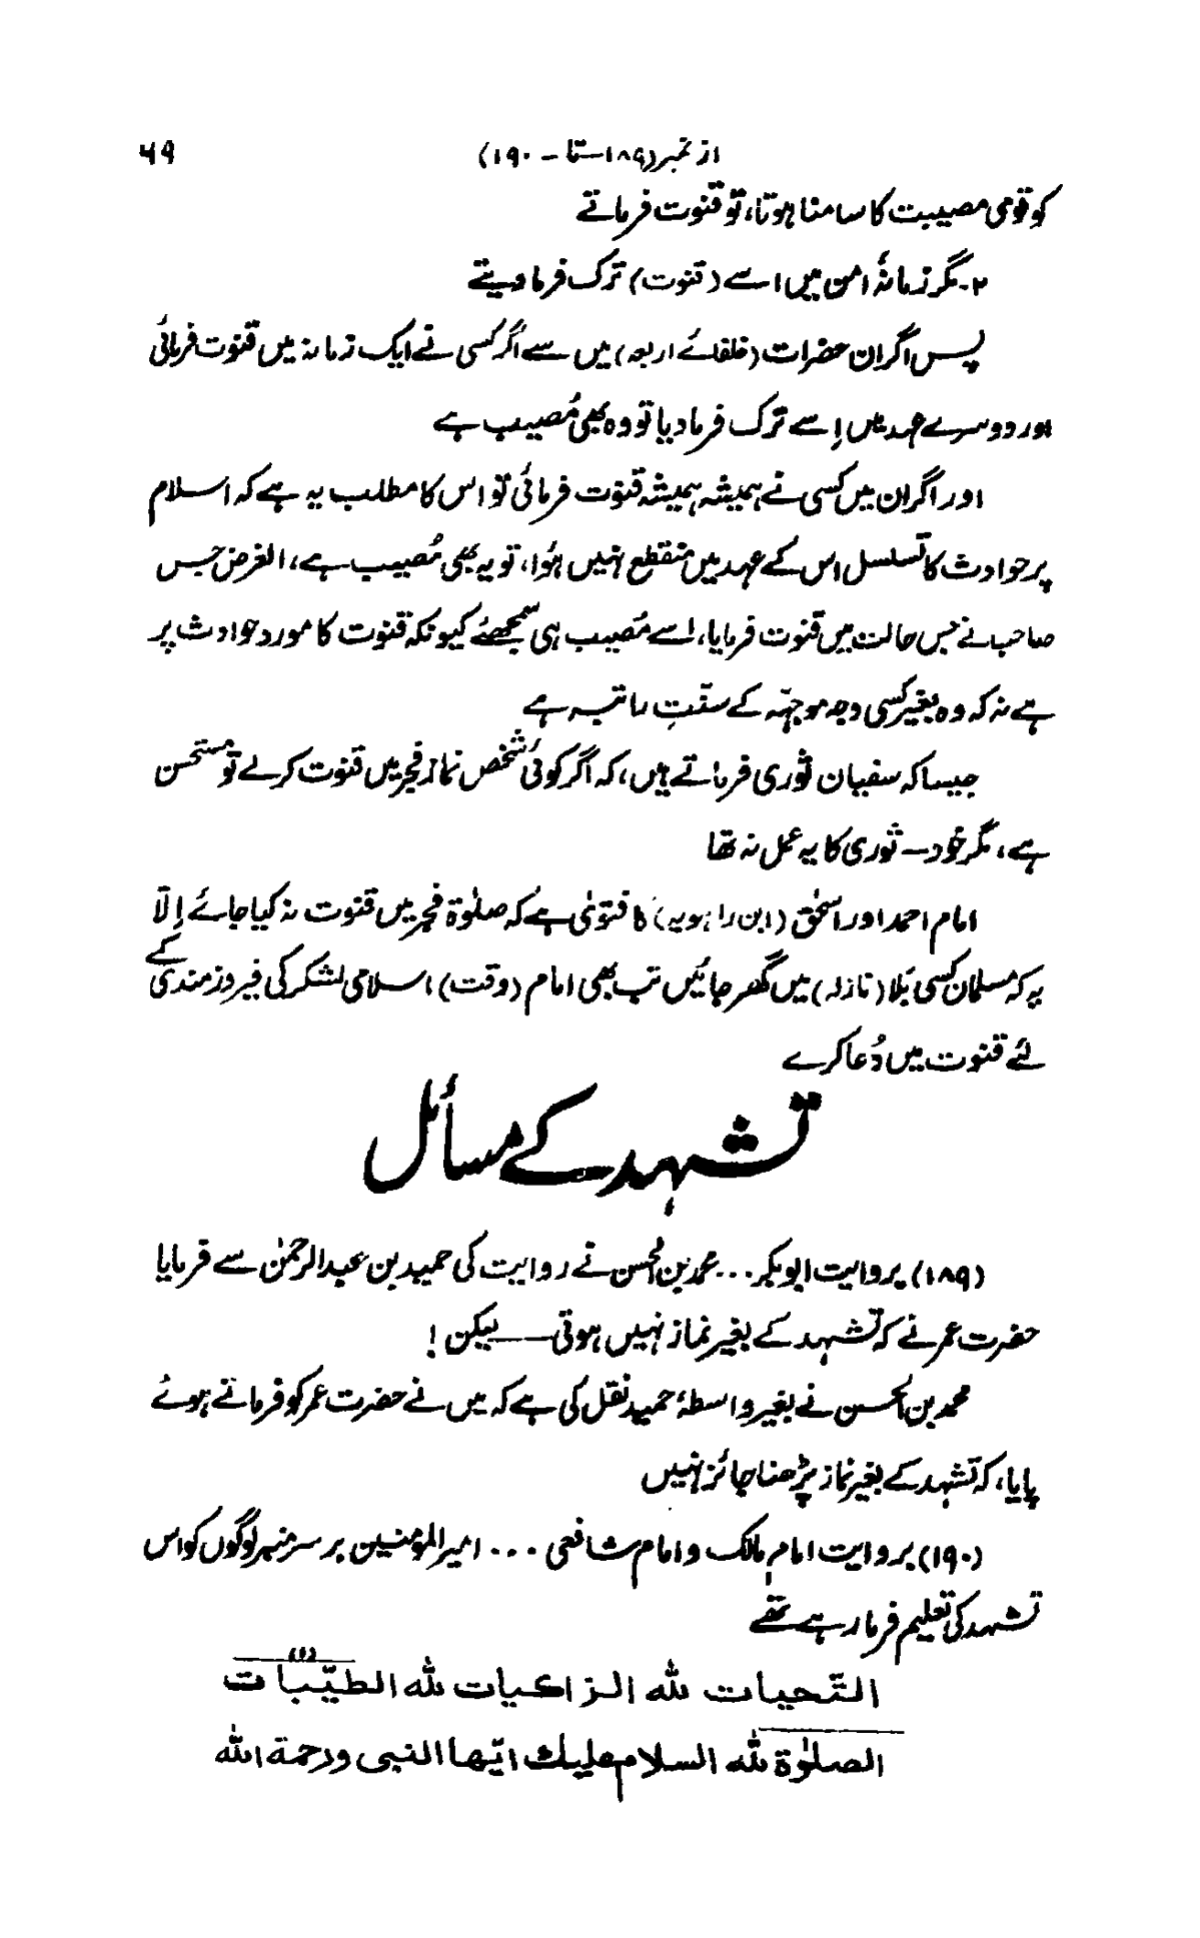 از نمبر (۱۸۹ تا ۔ ۱۹۰) ۶۹
کو قومی مصیبت کا سامنا ہوتا، تو قنوت فرماتے
۲۔ مگر زمانۂ امن میں اسے (قنوت) ترک فرما دیتے
پس اگر ان حضرات (خلفائے اربعہ) میں سے اگر کسی نے ایک زمانہ میں قنوت فرمائی
اور دوسرے عہد میں اِسے ترک فرما دیا تو وہ بھی مُصیب ہے
اور اگر ان میں کسی نے ہمیشہ ہمیشہ قنوت فرمائی تو اس کا مطلب یہ ہے کہ اسلام
پر حوادث کا تسلسل اس کے عہد میں منقطع نہیں ہُوا، تو یہ بھی مُصیب ہے، الغرض جس
صاحب نے جس حالت میں قنوت فرمایا، اسے مُصیب ہی سمجھئے کیونکہ قنوت کا مورد حوادث پر
ہے نہ کہ وہ بغیر کسی وجہ موجہّہ کے سنّتِ راتبہ ہے
جیسا کہ سفیان ثوری فرماتے ہیں، کہ اگر کوئی شخص نماز فجر میں قنوت کرلے تو مستحسن
ہے، مگر خود ـ ثوری کا یہ عمل نہ تھا
امام احمد اور اسحٰق (ابن راہویہ) کا فتویٰ ہے کہ صلوٰۃ فجر میں قنوت نہ کیا جائے اِلّا
یہ کہ مسلمان کسی بَلا (نازلہ) میں گھر جائیں تب بھی امام (وقت) اسلامی لشکر کی فیروزمندی کے
لئے قنوت میں دُعا کرے
تشہد کے مسائل
(۱۸۹) بروایت ابوبکر ... محمد بن الحسن نے روایت کی حمید بن عبدالرحمٰن سے فرمایا
حضرت عمر نے کہ تشہد کے بغیر نماز نہیں ہوتی ـــ لیکن!
محمد بن الحسن نے بغیر واسطۂ حمید نقل کی ہے کہ میں نے حضرت عمر کو فرماتے ہوئے
پایا، کہ تشہد کے بغیر نماز پڑھنا جائز نہیں
(۱۹۰) بروایت امام مالک و امام شافعی ... امیرالمؤمنین بر سر منبر لوگوں کو اس
تشہد کی تعلیم فرما رہے تھے
التّحیات لله الزاکیات لله الطیّبات (۱)
الصلوٰة لله السلام علیك ایّها النبی ورحمة الله